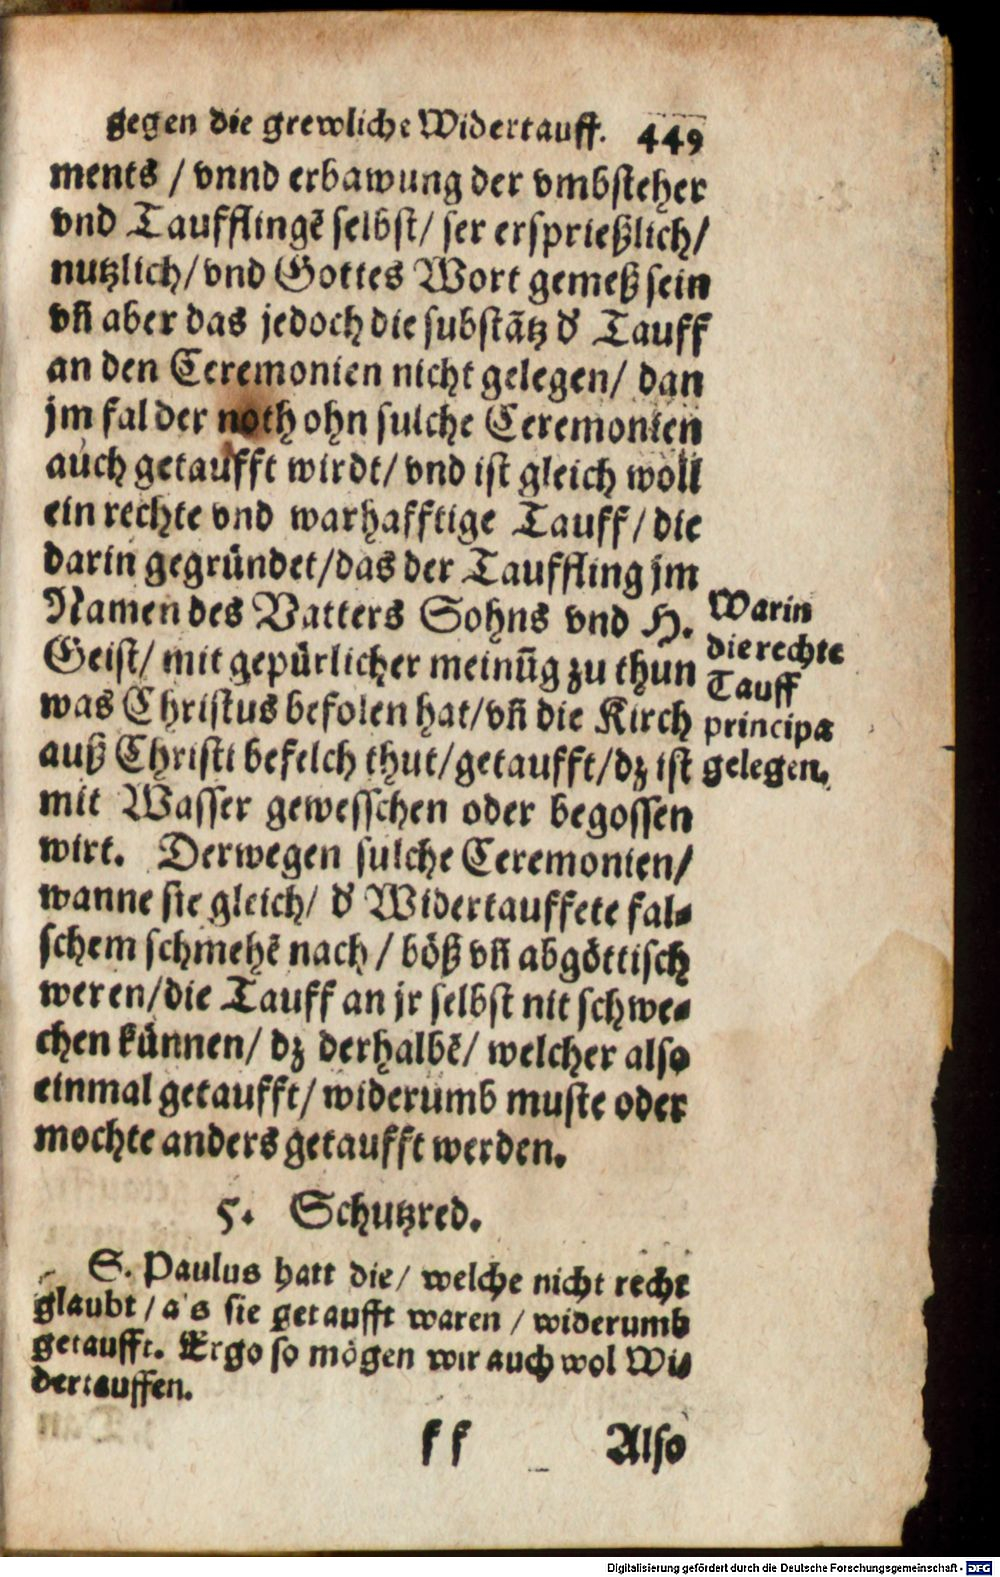 gegen die grewliche Widertauff. 449
ments / vnnd erbawung der vmbsteher
vnd Taufflingē selbst / ser ersprießlich /
nutzlich / vnd Gottes Wort gemeß sein
vn̄ aber das jedoch die substātz d' Tauff
an den Ceremonien nicht gelegen / dan
jm fal der noth ohn sulche Ceremonien
auch getaufft wirdt / vnd ist gleich woll
ein rechte vnd warhafftige Tauff / die
darin gegründet / das der Tauffling jm
Namen des Vatters Sohns vnd H.
Geist / mit gepürlicher meinūg zu thun
was Christus befolen hat / vn̄ die Kirch
auß Christi befelch thut / getaufft / dz ist
mit Wasser gewesschen oder begossen
wirt. Derwegen sulche Ceremonien /
wanne sie gleich / d' Widertauffete fal-
schem schmehē nach / böß vn̄ abgöttisch
weren / die Tauff an jr selbst nit schwe-
chen künnen / dz derhalbē / welcher also
einmal getaufft / widerumb muste oder
mochte anders getaufft werden.
Warin
die rechte
Tauff
principa
gelegen.
5. Schutzred.
S. Paulus hatt die / welche nicht recht
glaubt / a s sie getaufft waren / widerumb
getaufft. Ergo so mögen wir auch wol Wi-
dertauffen.
ff Also
Digitalisierung gefördert durch die Deutsche Forschungsgemeinschaft - DFG